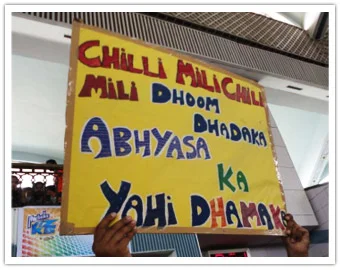 CHILLI MILI CHILI
MILI DHOOM
DHADAKA
ABHYASA
KA
YAHI DHAMAKA